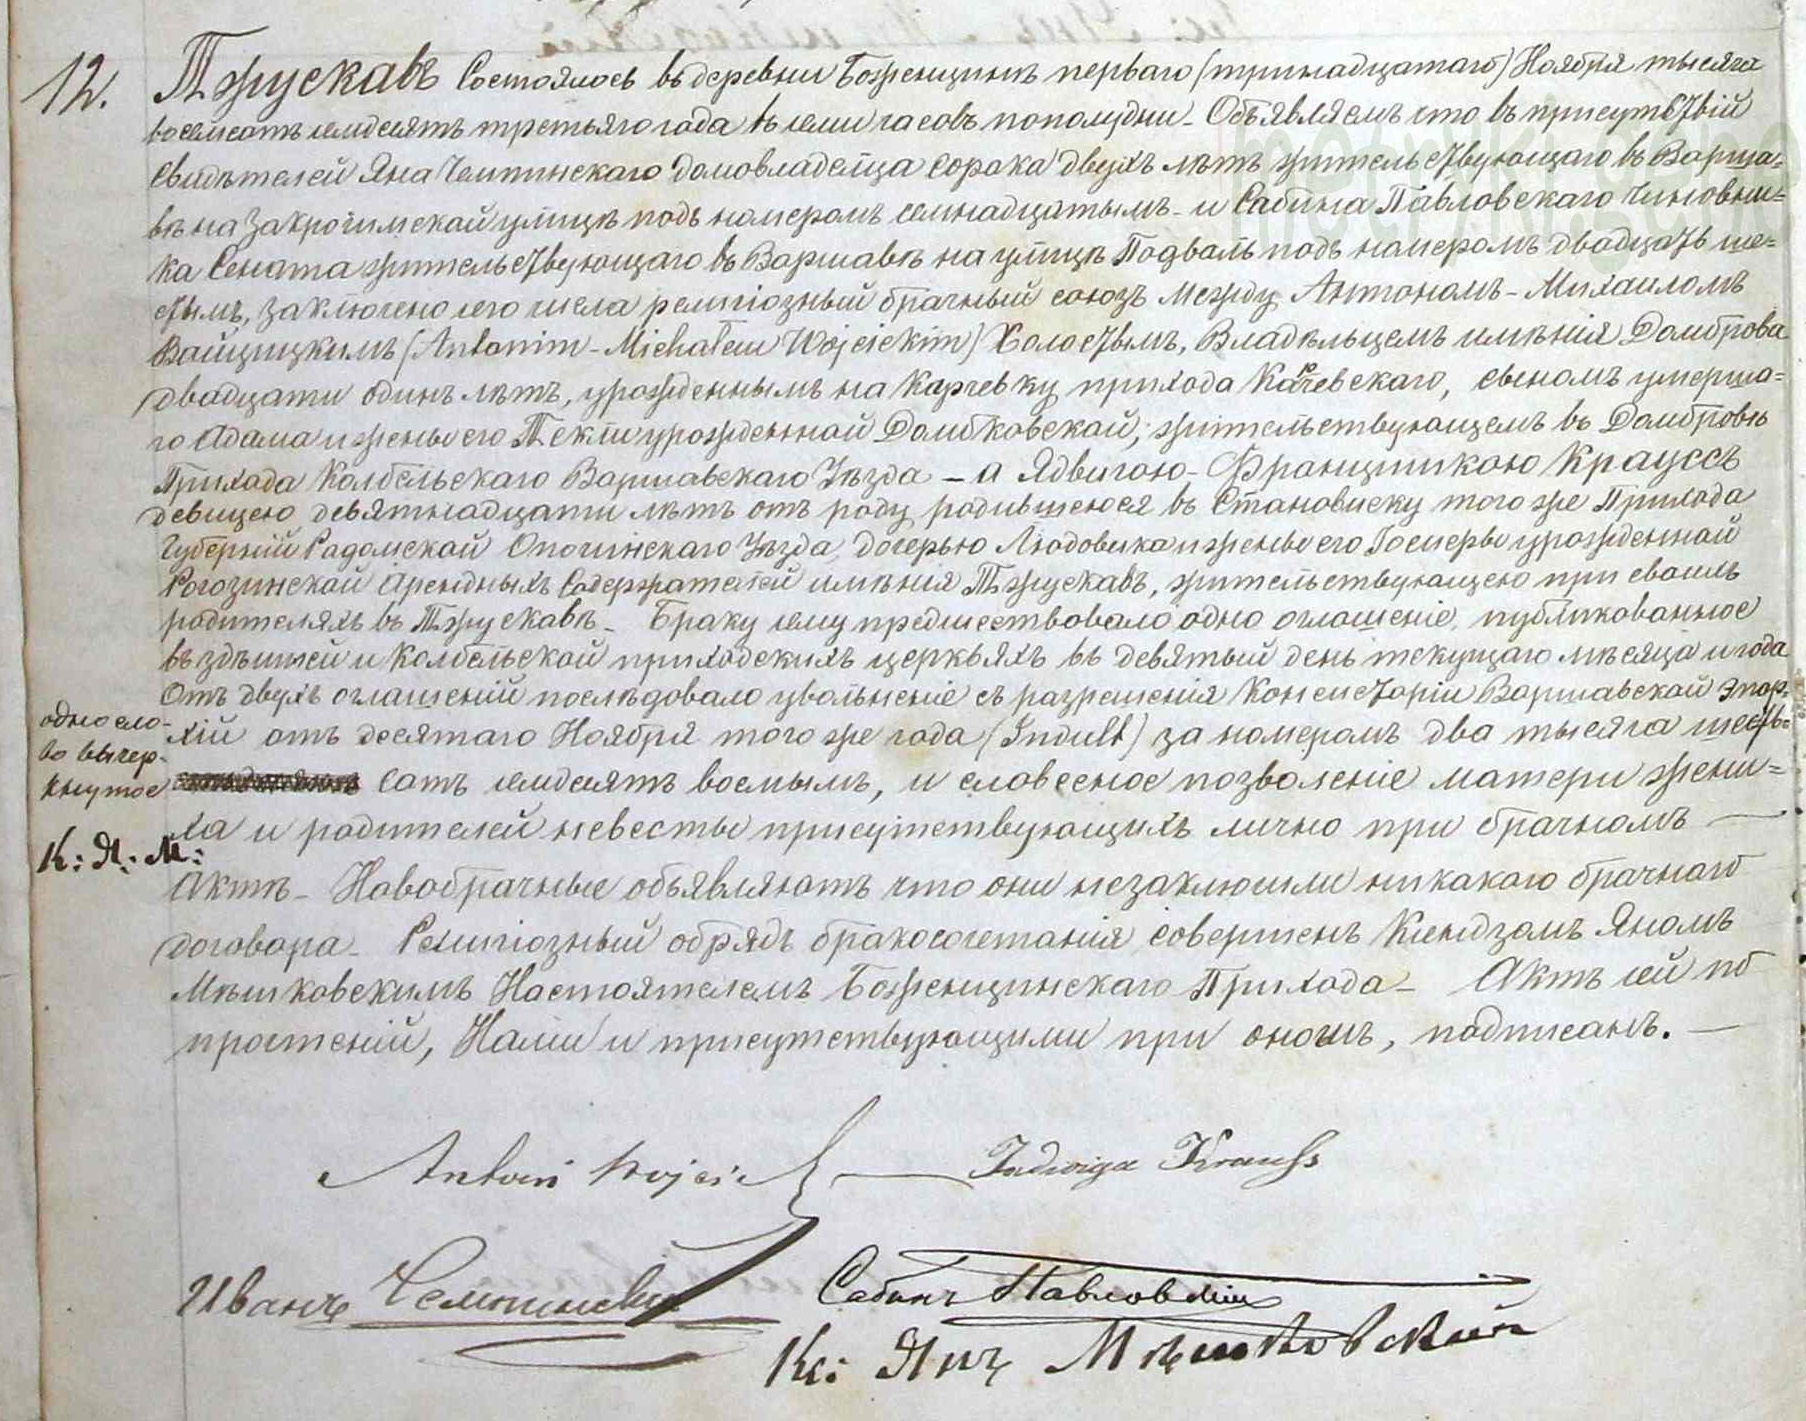 12. Тжускавъ Состоялось въ деревни Боженцинѣ перваго (тринадцатаго) Ноября тысяча
восемсотъ семдесятъ третьяго года въ семи часовъ пополудни – Объявляемъ что въ присутствій
Свидѣтелей Яна Чемпинскаго домовладелца сорока двухъ лѣтъ жительствующаго въ Варша=
вѣ на Закрочимской улицѣ подъ номеромъ семнадцатымъ – и Сабина Павловскаго Чиновни=
ка Сената жительствующаго въ Варшавѣ на улицѣ Подваль подъ номеромъ двадцать ше=
стымъ, заключено сего числа религіозный брачный союзъ между Антономъ – Михаиломъ
Вайцицкимъ (Antonim – Michałem Wojcickim) Холостымъ, Владѣльцемъ имѣнія Домброва
двадцати одинъ лѣтъ, урожденнымъ на Карчевку прихода Карчевскаго, сыномъ умерша=
го Адама и жены его Текли урожденной Домбковской, жительствующемъ въ Домбровѣ
Прихода Колбельскаго Варшавскаго Уѣзда – а Ядвигою – Францишкою Крауссъ
девицею девятнадцати лѣтъ отъ роду родившеюся въ Становиску того же Прихода
Губерній Радомской Опочинскаго Уѣзда, дочерью Людовика и жены его урожденной
Рогозинской Арендныхъ Содержателей имѣнія Тжускавъ, жительствующею при своихъ
родителяхъ въ Тжускавѣ – Браку сему предшествовало одно оглашеніе, публикованное
въ здѣшней и Колбельской приходскихъ церквяхъ въ девятый день текущаго мѣсяца и года
Отъ двухъ оглашеній послѣдовало увольненіе съ разрешенія Консисторіи Варшавской Эпар=
хій отъ десятаго Ноября того же года (Indult) за номеромъ два тысяча шесть=
сотъ семдесятъ восмымъ, и словесное позволеніе матери жени=
ха и родителей невесты присутствующихъ лично при брачномъ —
Актѣ – Новобрачные объявляютъ что они незаключили никакого брачнаго
договора – Религіозный обрядъ бракосочетанія совершенъ Ксендзомъ Яномъ
Мѣшковскимъ Настоятелемъ Боженцинскаго Прихода – Актъ сей по
прочтеній, Нами и присутствующими при ономъ, подписанъ. —
одно сло-
во вычер-
кнутое
К: Я: М:
Antoni Wojcicki — Jadwiga Krauss
Иванъ Чемпинскій Сабинъ Павловскій
Кс: Янъ Мѣшковскій